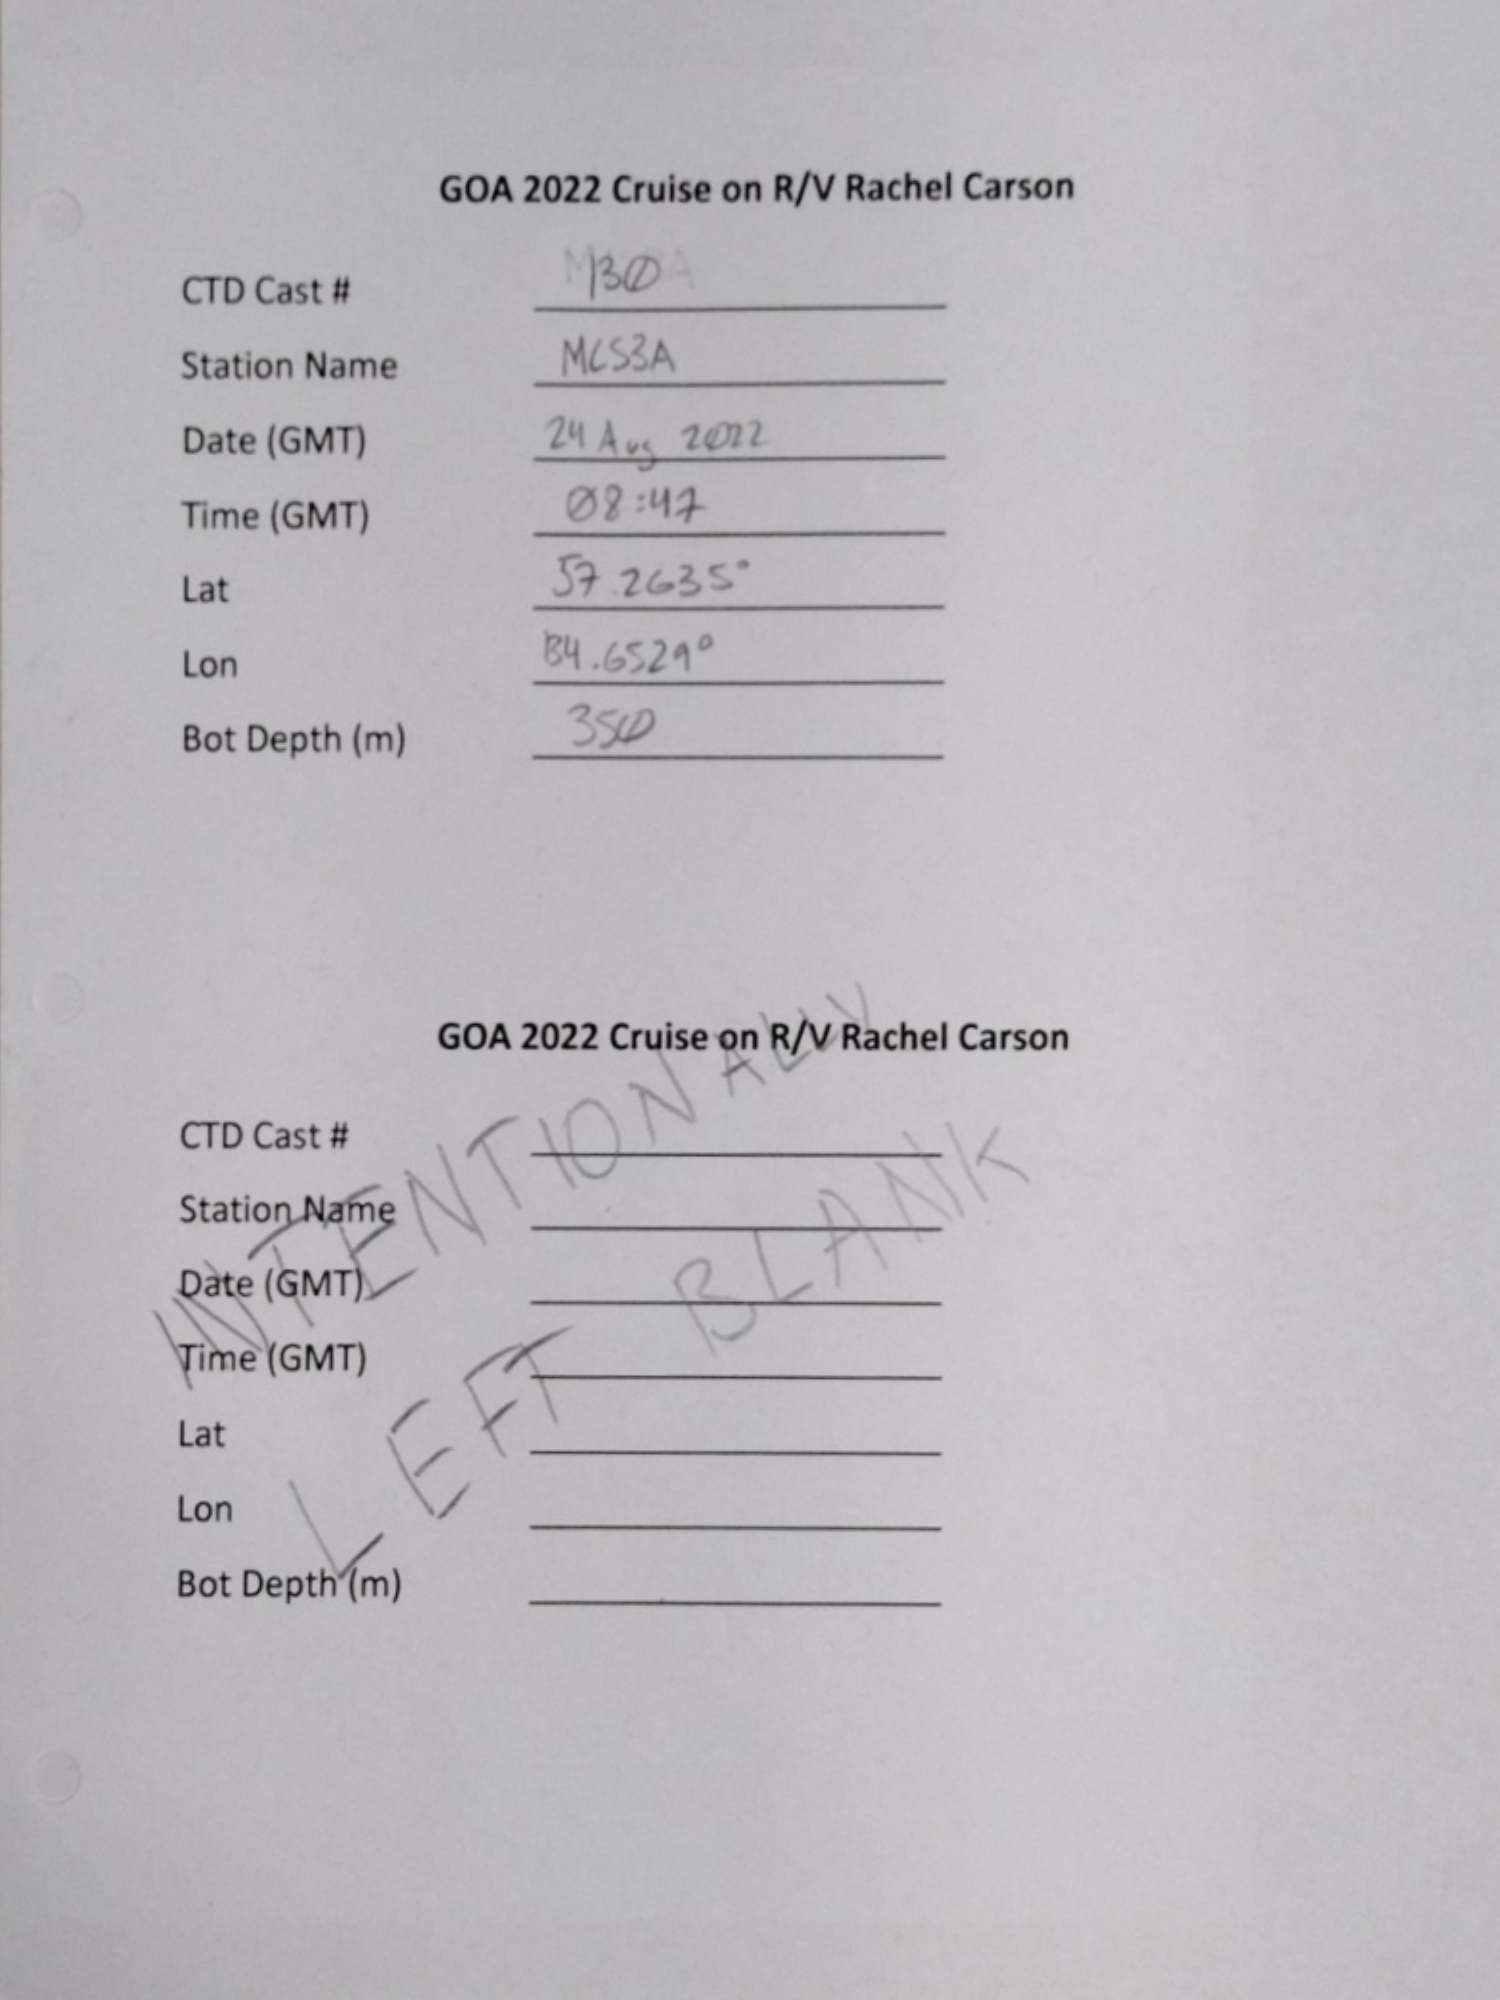 GOA 2022 Cruise on R/V Rachel Carson
CTD Cast # 130
Station Name MCS3A
Date (GMT) 24 Aug 2022
Time (GMT) 08:47
Lat 57.2635°
Lon 134.6529°
Bot Depth (m) 350
GOA 2022 Cruise on R/V Rachel Carson
CTD Cast #
Station Name
Date (GMT)
Time (GMT)
Lat
Lon
Bot Depth (m)
INTENTIONALLY
LEFT BLANK